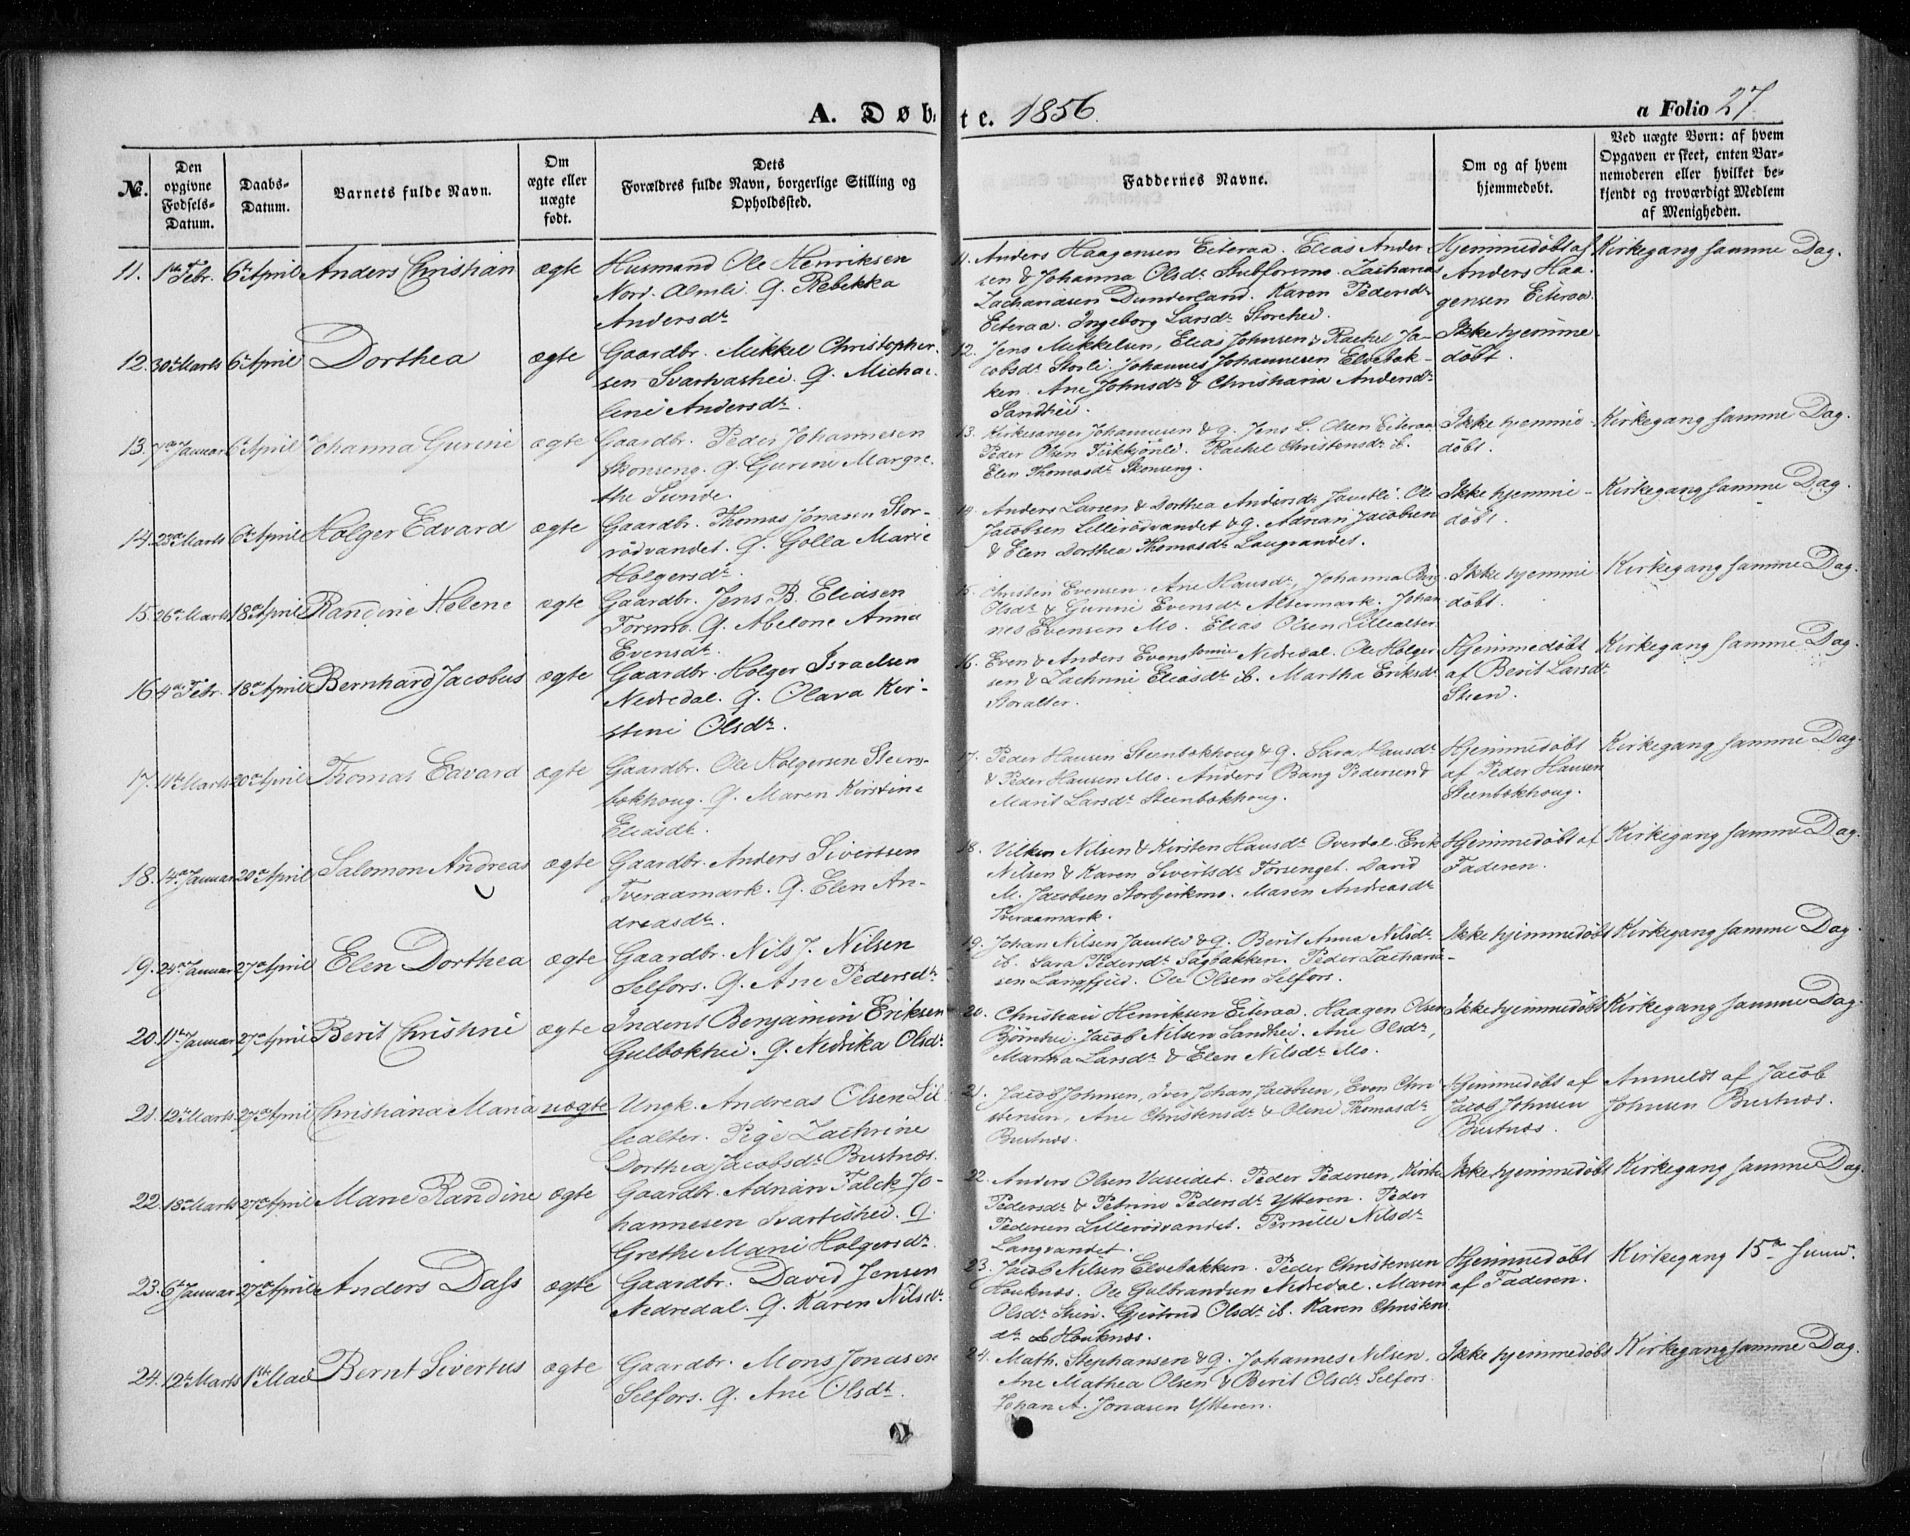 A. Døbte. 1856.
a Folio 27.
No.
Den opgivne Fødsels-Datum.
Daabs-Datum.
Barnets fulde Navn.
Om ægte eller uægte født.
Dets Forældres fulde Navn, borgerlige Stilling og Opholdssted.
Faddernes Navne.
Om og af hvem hjemmedøbt.
Ved uægte Børn: af hvem Opgaven er skeet, enten Barnemoderen eller hvilket bekjendt og troværdigt Medlem af Menigheden.
11. 1ste Febr. 6te April Anders Christian ægte
Husmand Ole Henriksen
Nord-Almli. Q. Rebekka
Andersdr.
11. Anders Haagensen Eiteraa. Elias Ander
sen & Johanna Olsdr Stubforsmo. Zacharias
Zachariasen Dunderland. Karen Pedersdr
Eiteraa. Ingeborg Larsdr Storehei.
Hjemmedøbt af
Anders Haa
gensen Eiteraa.
Kirkegang samme Dag.
12. 30te Marts 6te April Dorthea ægte
Gaardbr. Mikkel Christopher
sen Svartvashei. Q. Micha
line Andersdr.
12. Jens Mikkelsen, Elias Johnsen, Rachel Ja-
cobsdr Storli. Johannes Johannesen Elvebak-
ken. Ane Johnsdr & Christiana Andersdr
Sandhei.
Ikke hjemme-
døbt.
13. Januar 6te April Johanna Gurine ægte
Gaardbr. Peder Johannesen
Skonseng. Q. Gurine Margre
the Sunde.
13. Kirkesanger Johannesen & Q. Jens L. Olsen Eiteraa
Peder Olsen Fiskkjønli. Rachel Christensdr ib.
Elen Thomasdr Skonseng.
Ikke hjemme-
døbt.
Kirkegang samme Dag.
14. 23de Marts 6te April Holger Edvard ægte
Gaardbr. Thomas Jonasen Stor-
rødvandet. Q. Golla Marie
Holgersdr.
14. Anders Larsen & Dorthea Andersdr Jamtli. Ole
Jacobsen Lillerødvandet & Q. Adrian Jacobsen
& Elen Dorthea Thomasdr Langvandet.
Ikke hjemme-
døbt.
Kirkegang samme Dag.
15. 26de Marts 18de April Randine Helene ægte
Gaardbr. Jens B. Eliasen
Forsmo. Q. Abelone Anna
Evensdr.
15. Christen Evensen. Ane Hansdr, Johanna
Olsdr & Gunni Evensdr Altermark. Johan
nes Evensen Mo. Elias Olsen Lillealter
Ikke hjemme
døbt.
Kirkegang samme Dag.
16. 4de Febr. 18de April Bernhard Jacobus ægte
Gaardbr. Holger Israelsen
Nedredal. Q. Olava Kir-
stine Olsdr.
16. Even & Anders Evensønner Nedredal. Ole Holger
sen & Zachrine Eliasdr ib. Martha Eriksdr
Storalter.
Hjemmedøbt
af Berit Larsdr
Steen.
Kirkegang samme Dag.
17. 11te Marts 20de April Thomas Edvard ægte
Gaardbr. Ole Holgersen Steen-
bokhoug. Q. Maren Kirstine
Eliasdr.
17. Peder Hansen Steenbokhoug & Q. Sara Hansdr
& Peder Hansen Mo. Anders Bang Pedersen &
Marit Larsdr Steenbokhoug.
Hjemmedøbt
af Peder Hansen
Steenbokhoug.
Kirkegang samme Dag.
18. 14de Januar 20de April Salomon Andreas ægte
Gaardbr. Anders Sivertsen
Tveraamark. Q. Elen An-
dreasdr.
18. Vilken Nilsen & Kirsten Hansdr Overdal. Erik
Nilsen & Karen Sivertsdr Forsenget. David
M. Jacobsen Storbjerkmo. Maren Andreasdr
Tveraamark.
Hjemmedøbt af
Faderen.
Kirkegang samme Dag.
19. 24de Januar 27de April Elen Dorthea ægte
Gaardbr. Nils J. Nilsen
Selfors. Q. Ane Pedersdr.
19. Johan Nilsen Jamtli & Q. Berit Anna Nilsdr
ib. Sara Pedersdr Sagbakken. Peder Zacharia-
sen Langfjeld. Ole Olsen Selfors.
Ikke hjemmedøbt
Kirkegang samme Dag.
20. 11te Januar 27de April Berit Christine ægte
Inderst Benjamin Eriksen
Gulbokhei. Q. Nedrika Olsdr.
20. Christian Henriksen Eiteraa. Haagen Olsen
Bjørnhei. Jacob Nilsen Sandhei. Ane Olsdr,
Martha Larsdr & Elen Nilsdr Mo.
Ikke hjemmedøbt
Kirkegang samme Dag.
21. 12te Marts 27de April Christiana Maria uægte
Ungk. Andreas Olsen Lil
lealter. Pige Zachrine
Dorthea Jacobsdr Bustnæs.
21. Jacob Johnsen, Iver Johan Jacobsen, Even Chri
stensen, Ane Christensdr & Oline Thomasdr
Bustnæs.
Hjemmedøbt af
Jacob Johnsen
Bustnæs.
Anmeldt af Jacob
Johnsen Bustnæs.
22. 18de Marts 27de April Marie Randine ægte
Gaardbr. Adrian Falck Jo-
hannesen Svartishei. Q.
Grethe Marie Holgersdr.
22. Anders Olsen Vaseidet. Peder Pedersen, Kirsti
Pedersdr & Petrine Pedersdr Ytteren. Peder
Pedersen Lillerødvandet. Pernille Nilsdr
Langvandet.
Ikke hjemmedøbt
Kirkegang samme Dag.
23. 6te Januar 27de April Anders Dass ægte
Gaardbr. David Jensen
Nedredal. Q. Karen Nilsdr.
23. Jacob Nilsen Elvebakken. Peder Christensen
Houknæs. Ole Gulbrandsen Nedredal. Maren
Olsdr Steen. Gjertrud Olsdr ib. Karen Christens
dr Houknæs.
Hjemmedøbt
af Faderen.
Kirkegang 15de Juni.
24. 12te Marts 1ste Mai Bernt Sivertus ægte
Gaardbr. Mons Jonasen
Selfors. Q. Ane Olsdr.
24. Math. Stephansen & Q. Johannes Nilsen.
Ane Mathea Olsen & Berit Olsdr Selfors.
Johan A. Jonasen Ytteren.
Ikke hjemmedøbt
Kirkegang samme Dag.